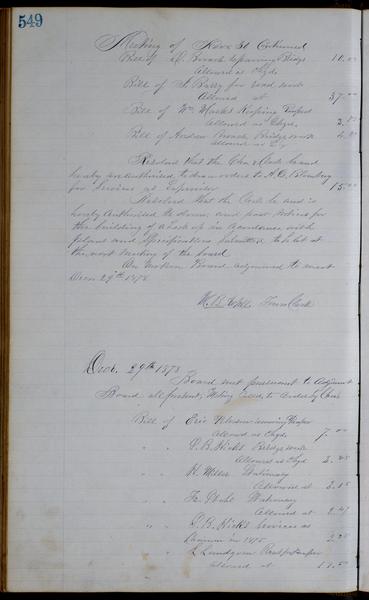 549
Meeting of Nov 31 Continued
Bill of Broach repairing Bridge 10.00
Allowed as Chgd.
Bill of Batty for road work
Allowed at 37.00
Bill of Wm Marks Keeping Pauper
Allowed as Chgd. 2.
Bill of Andrew Broach Bridge work
allowed as
Resolved that the Chr & Clerk be and
hereby are authorised to draw orders to A.C.
for Services as Supervisor 15.00
Resolved that the Clerk be and is
hereby Authorised to draw and post notices for
the building of a Lock up in accordance with
plans and specifications submitted to be let at
the next meeting of the board
On Motion Board adjourned to meet
Decm 29th 1878
Town Clerk
Decb. 29th 1878
Board met pursuant to Adjmt
Board all present, Meting Called to order by Chr
Bill of Eric Nelson moving Pauper
Allowed as Chgd. 7.00
" " P.B. Hicks Bridge work
Allowed as Chgd
" " H. Miller Stationary
Allowed at 3.15
" " Fr. Stahl Stationary
Allowed at 2.
" " P.B. Hicks Services as
in 1875
" L Lundgren Rent for Pauper
allowed at